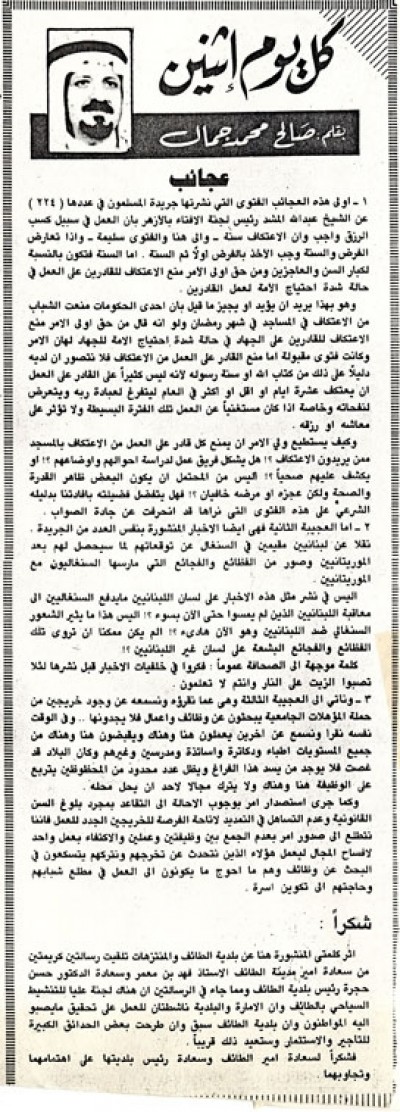 كل يوم إثنين
بقلم: صالح محمد جمال
عجائب
١ ـ اولى هذه العجائب الفتوى التي نشرتها جريدة المسلمون في عددها (٢٢٤)
عن الشيخ عبدالله المشد رئيس لجنة الافتاء بالأزهر بأن العمل في سبيل كسب
الرزق واجب وان الاعتكاف سنة ـ والى هنا والفتوى سليمة ـ واذا تعارض
الفرض والسنة وجب الاخذ بالفرض اولاً ثم السنة . اما السنة فتكون بالنسبة
لكبار السن والعاجزين ومن حق اولى الامر منع الاعتكاف للقادرين على العمل في
حالة شدة احتياج الامة لعمل القادرين .
وهو بهذا يريد ان يؤيد او يجيز ما قيل بأن احدى الحكومات منعت الشباب
من الاعتكاف في المساجد في شهر رمضان ولو انه قال من حق اولى الامر منع
الاعتكاف للقادرين على الجهاد في حالة شدة احتياج الامة للجهاد لهان الامر
وكانت فتوى مقبولة اما منع القادر على العمل من الاعتكاف فلا نتصور ان لديه
دليلاً على ذلك من كتاب الله او سنة رسوله لانه ليس كثيراً على القادر على العمل
ان يعتكف عشرة ايام او اقل او اكثر في العام ليتفرغ لعبادة ربه ويتعرض
لنفحاته وخاصة اذا كان مستغنياً عن العمل تلك الفترة البسيطة ولا تؤثر على
معاشه او رزقه .
وكيف يستطيع ولي الامر ان يمنع كل قادر على العمل من الاعتكاف بالمسجد
ممن يريدون الاعتكاف ؟! هل يشكل فريق عمل لدراسة احوالهم واوضاعهم ؟! او
يكشف عليهم صحياً ؟! اليس من المحتمل ان يكون البعض ظاهر القدرة
والصحة ولكن عجزه او مرضه خافيان ؟! فهل يتفضل فضيلته بافادتنا بدليله
الشرعي على هذه الفتوى التي نراها قد انحرفت عن جادة الصواب .
٢ ـ اما العجيبة الثانية فهى ايضا الاخبار المنشورة بنفس العدد من الجريدة .
نقلا عن لبنانيين مقيمين في السنغال عن توقعاتهم لما سيحصل لهم بعد
الموريتانيين وصور من الفظائع والفجائع التي مارسها السنغاليون مع
الموريتانيين .
اليس في نشر مثل هذه الاخبار على لسان اللبنانيين مايدفع السنغاليين الى
معاقبة اللبنانيين الذين لم يمسوا حتى الآن بسوء ؟! اليس هذا ما يثير الشعور
السنغالي ضد اللبنانيين وهو الآن هادىء ؟! الم يكن ممكنا ان تروى تلك
الفظائع والفجائع البشعة على لسان غير اللبنانيين ؟!
كلمة موجهة الى الصحافة عموماً : فكروا في خلفيات الاخبار قبل نشرها لئلا
تصبوا الزيت على النار وانتم لا تعلمون .
٣ ـ وتأتي الى العجيبة الثالثة وهى عما نقرؤه ونسمعه عن وجود خريجين من
حملة المؤهلات الجامعية يبحثون عن وظائف واعمال فلا يجدونها .. وفي الوقت
نفسه نقرا ونسمع عن آخرين يعملون هنا وهناك ويقبضون هنا وهناك من
جميع المستويات اطباء ودكاترة واساتذة ومدرسين وغيرهم وكأن البلاد قد
غصت فلا يوجد من يسد هذا الفراغ ويظل عدد محدود من المحظوظين يتربع
على الوظيفة هنا وهناك ولا يترك مجالا لاحد ان يحل محله .
وكما جرى استصدار امر بوجوب الاحالة الى التقاعد بمجرد بلوغ السن
القانونية وعدم التساهل في التمديد لاتاحة الفرصة للخريجين الجدد للعمل فاننا
نتطلع الى صدور امر بعدم الجمع بين وظيفتين وعملين والاكتفاء بعمل واحد
لافساح المجال ليعمل هؤلاء الذين نتحدث عن تخرجهم ونتركهم يتسكعون في
البحث عن وظائف وهم ما احوج ما يكونون الى العمل في مطلع شبابهم
وحاجتهم الى تكوين اسرة .
شكراً :
اثر كلمتي المنشورة هنا عن بلدية الطائف والمنتزهات تلقيت رسالتين كريمتين
من سعادة امير مدينة الطائف الاستاذ فهد بن معمر وسعادة الدكتور حسن
حجرة رئيس بلدية الطائف ومما جاء في الرسالتين ان هناك لجنة عليا للتنشيط
السياحي بالطائف وان الامارة والبلدية ناشطتان للعمل على تحقيق مايصبو
اليه المواطنون وان بلدية الطائف سبق وان طرحت بعض الحدائق الكبيرة
للتأجير والاستثمار وستعيد ذلك قريباً .
فشكراً لسعادة امير الطائف وسعادة رئيس بلديتها على اهتمامهما
وتجاوبهما .